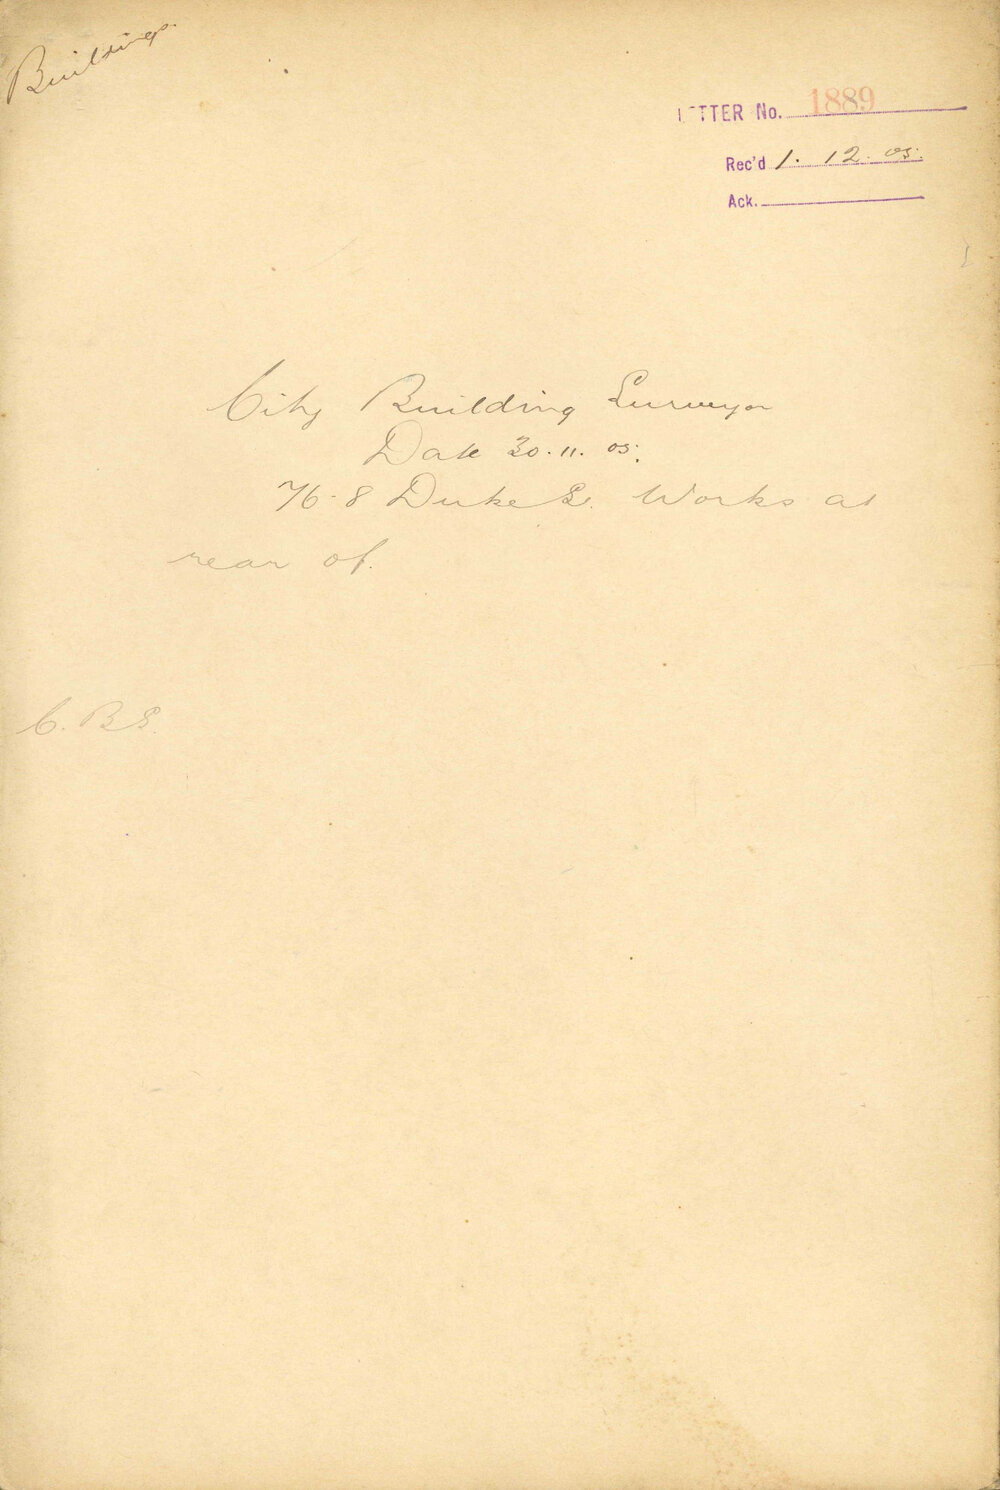 Buildings.
LETTER No. 1889
Rec'd 1. 12. 05.
Ack.
City Building Surveyor
Date 30. 11. 05.
76-8 Duke St. Works at
rear of.
C. B S.